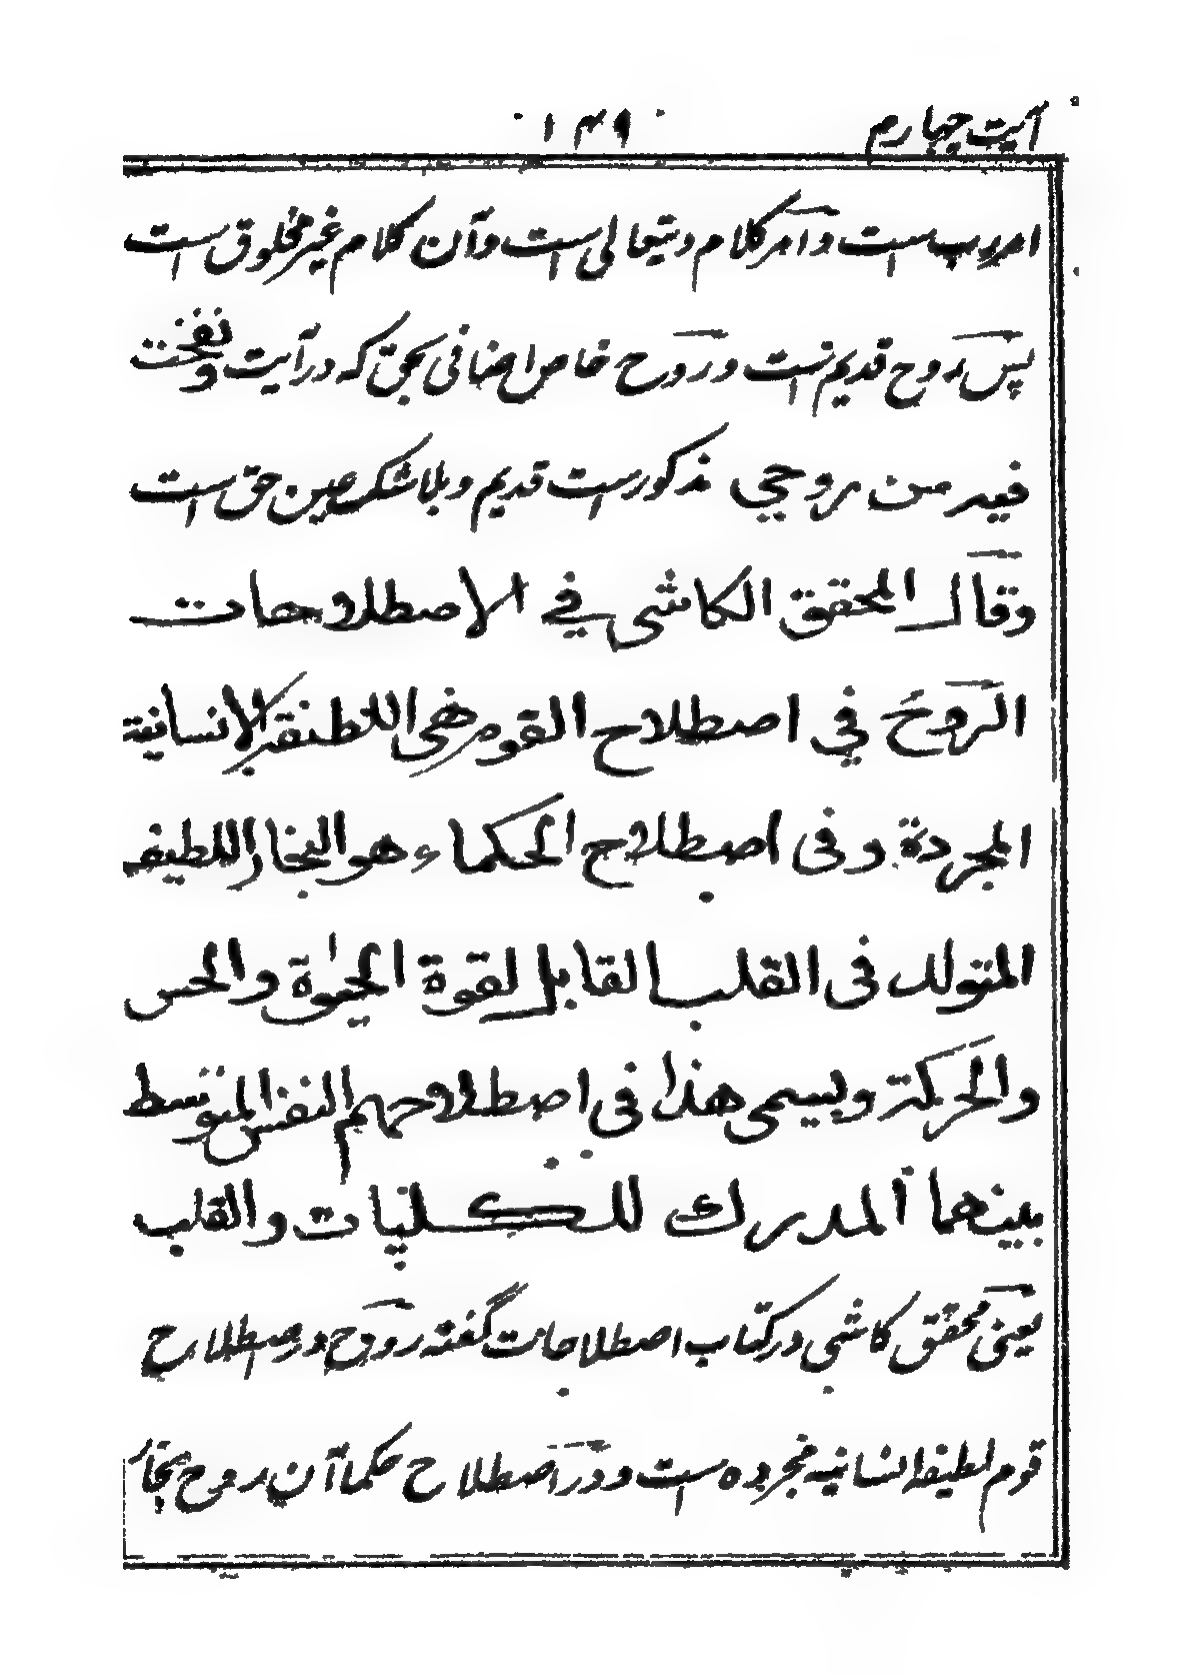 آیت چهارم ۱۴۹
امر رب ست و امر کلام و یتعالی است و آن کلام غیر مخلوق است
پس روح قدیم نست و روح خاص اضافی بحق که در آیت و نفخت
فیه من روحی مذکورست قدیم و بلاشک عین حق است
وقال المحقق الکاشی فی الاصطلاحات
الروح فی اصطلاح القوم هی اللطیفة الانسانیة
المجردة وفی اصطلاح الحکماء هو البخار اللطیف
المتولد فی القلب القابل لقوة الحیوة والحس
والحرکة ویسمی هذا فی اصطلاحهم النفس المتوسط
بینهما المدرک للکلیات والقلب
یعنی محقق کاشی در کتاب اصطلاحات گفته روح در اصطلاح
قوم لطیفه انسانیه مجرده ست و در اصطلاح حکما آن روح بخار